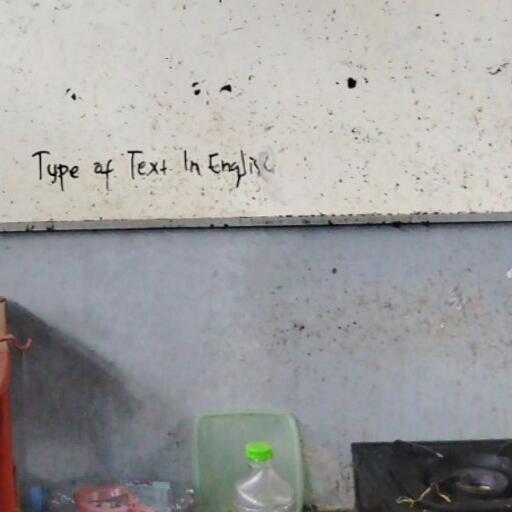 Type of Text In English